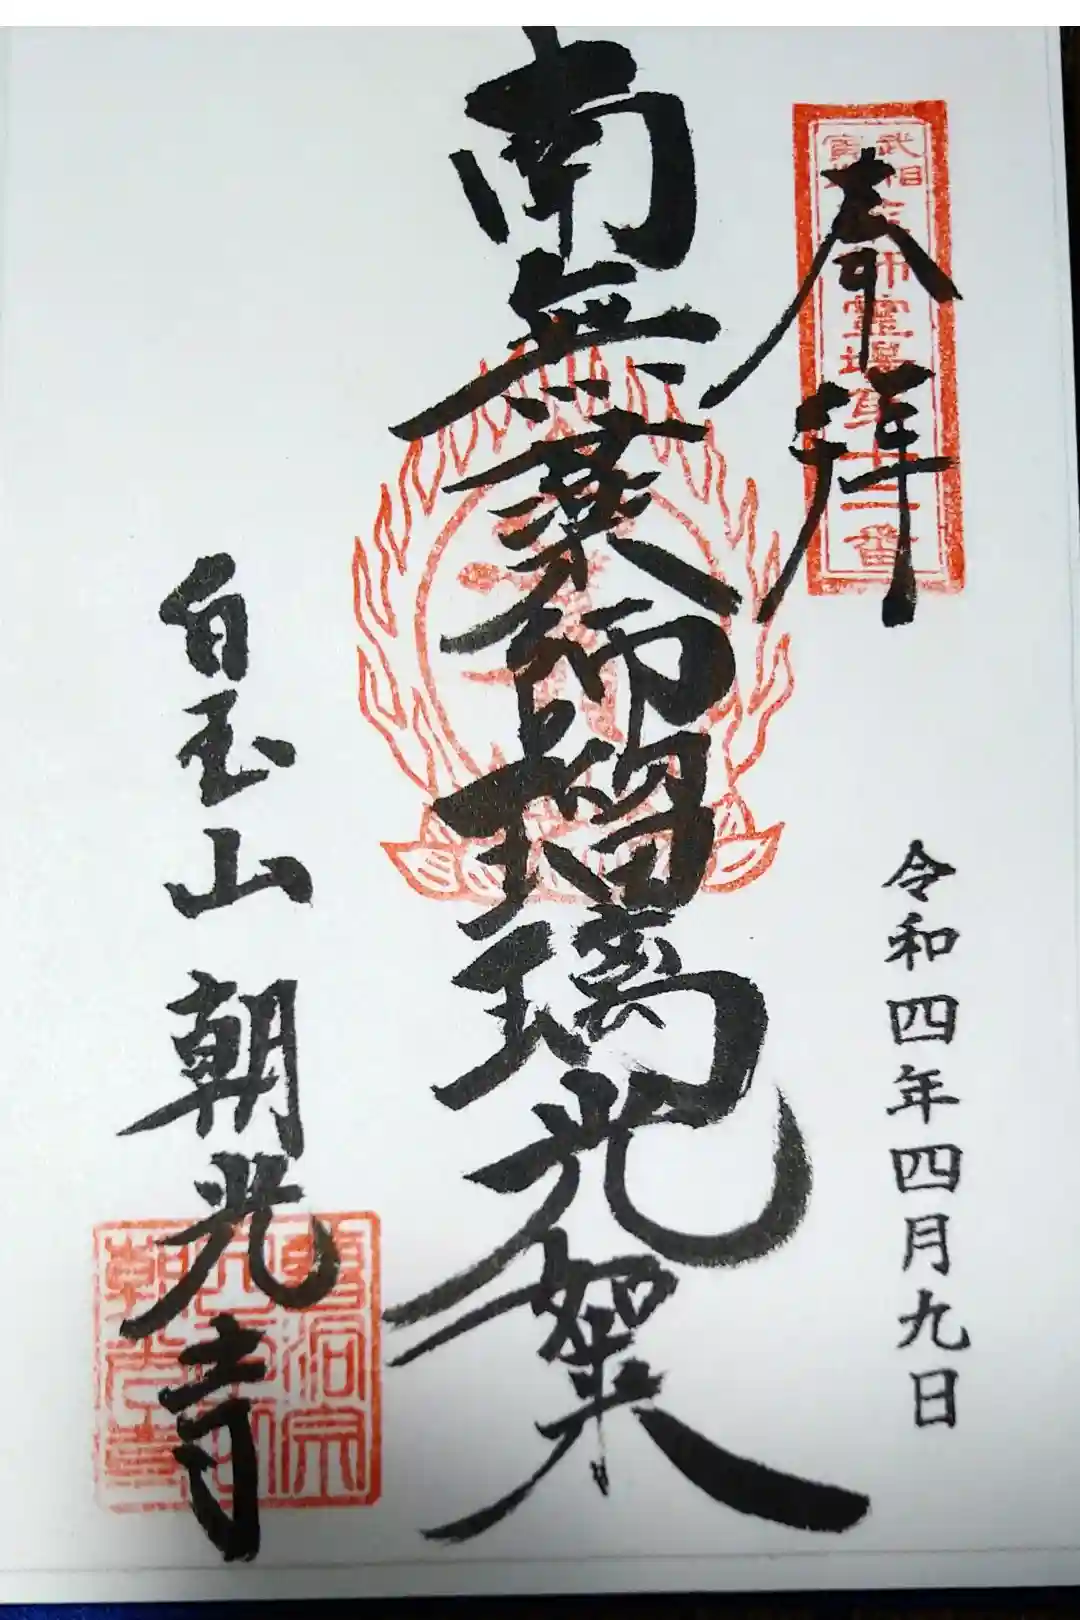 奉拝
武相
寅
師霊場第十二番
令和四年四月九日
南無薬師瑠璃光如来
白玉山 朝光寺
曹洞宗
朝光寺